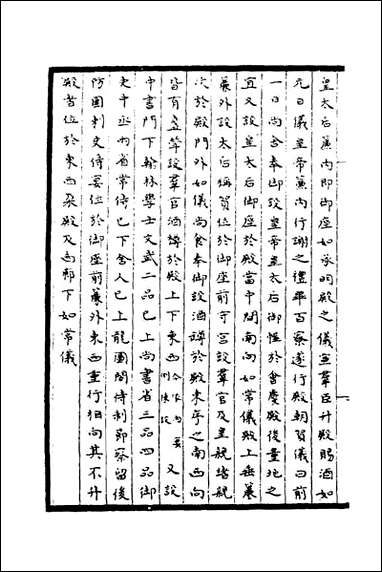 皇太后簾內即御座如承明殿之儀宣羣臣升殿賜酒如
元日儀皇帝簾內行謝之禮畢百寮遂行殿朝賀儀曰前
一日尚舍奉御設皇帝皇太后御幄於會慶殿後量地之
宜又設皇太后御座於殿當中間南向如常儀殿上垂簾
簾外設太后稱賀位於御座前守宮設羣官及皇親諸親
次於殿門外如儀尚食奉御設酒罇於殿東序之南西向
皆有坫等設羣官酒罇於殿上下東西 又設
中書門下翰林學士文武二品已上尚書省三品四品御
史中丞內省常侍已下舍人已上龍圖閣待制節察留後
防團刺史侍宴位於御座前簾外東西重行相向其不升
殿者位於東西朵殿及兩廊下如常儀